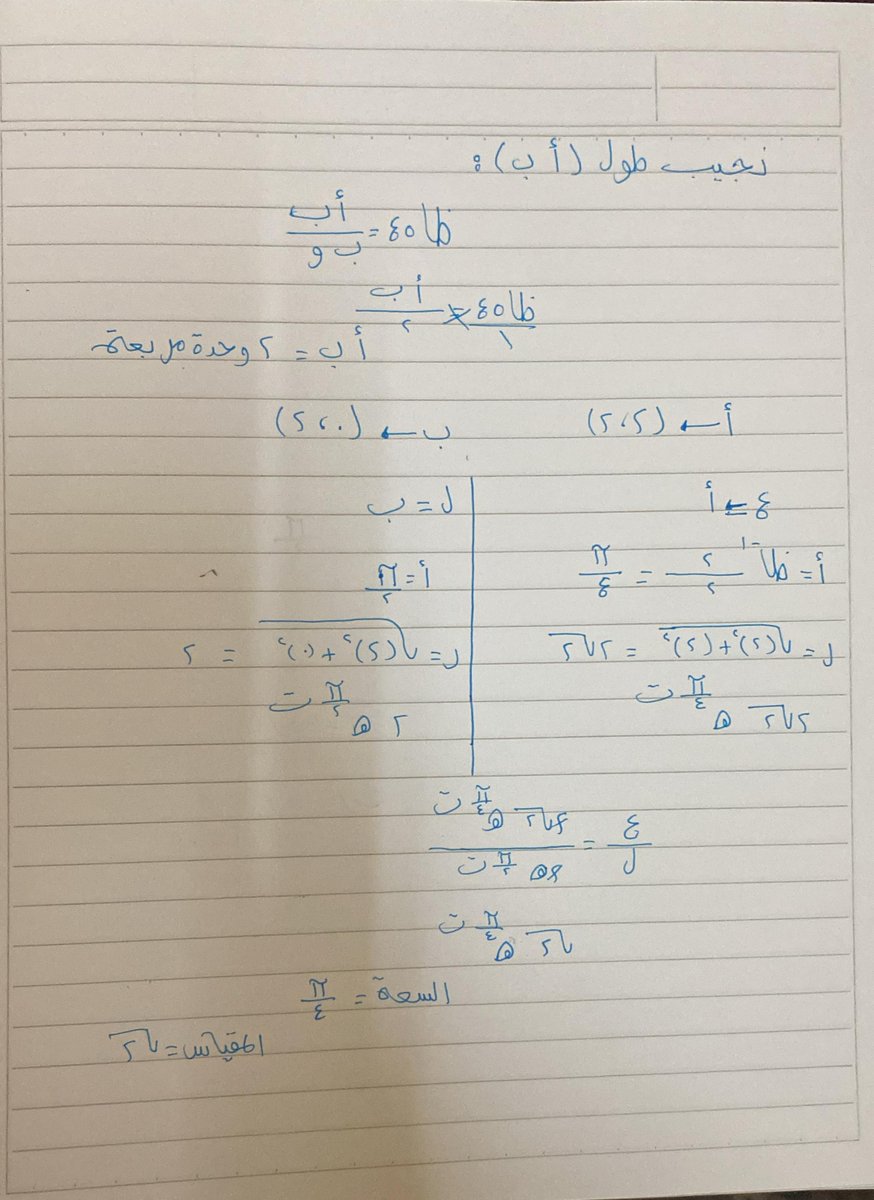 نجيب طول (أ ب) :
ظا ٤٥ = أب / ب و
ظا ٤٥ / ١ = أب / ٢
أ ب = ٢ وحدة مربعة
أ ← (٢،٢)
ب ← (٢،٠)
ع ← أ
أ = ظا⁻¹ ٢ / ٢ = π / ٤
ل = √(٢)² + (٢)² = ٢√٢
٢√٢ هـ π/٤ ت
ل = ب
أ = π / ٢
ل = √(٢)² + (٠)² = ٢
٢ هـ π/٢ ت
ع / ل = ٢√٢ هـ π/٤ ت / ٢ هـ π/٢ ت
√٢ هـ π/٤ ت
السعة = π / ٤
المقياس = √٢